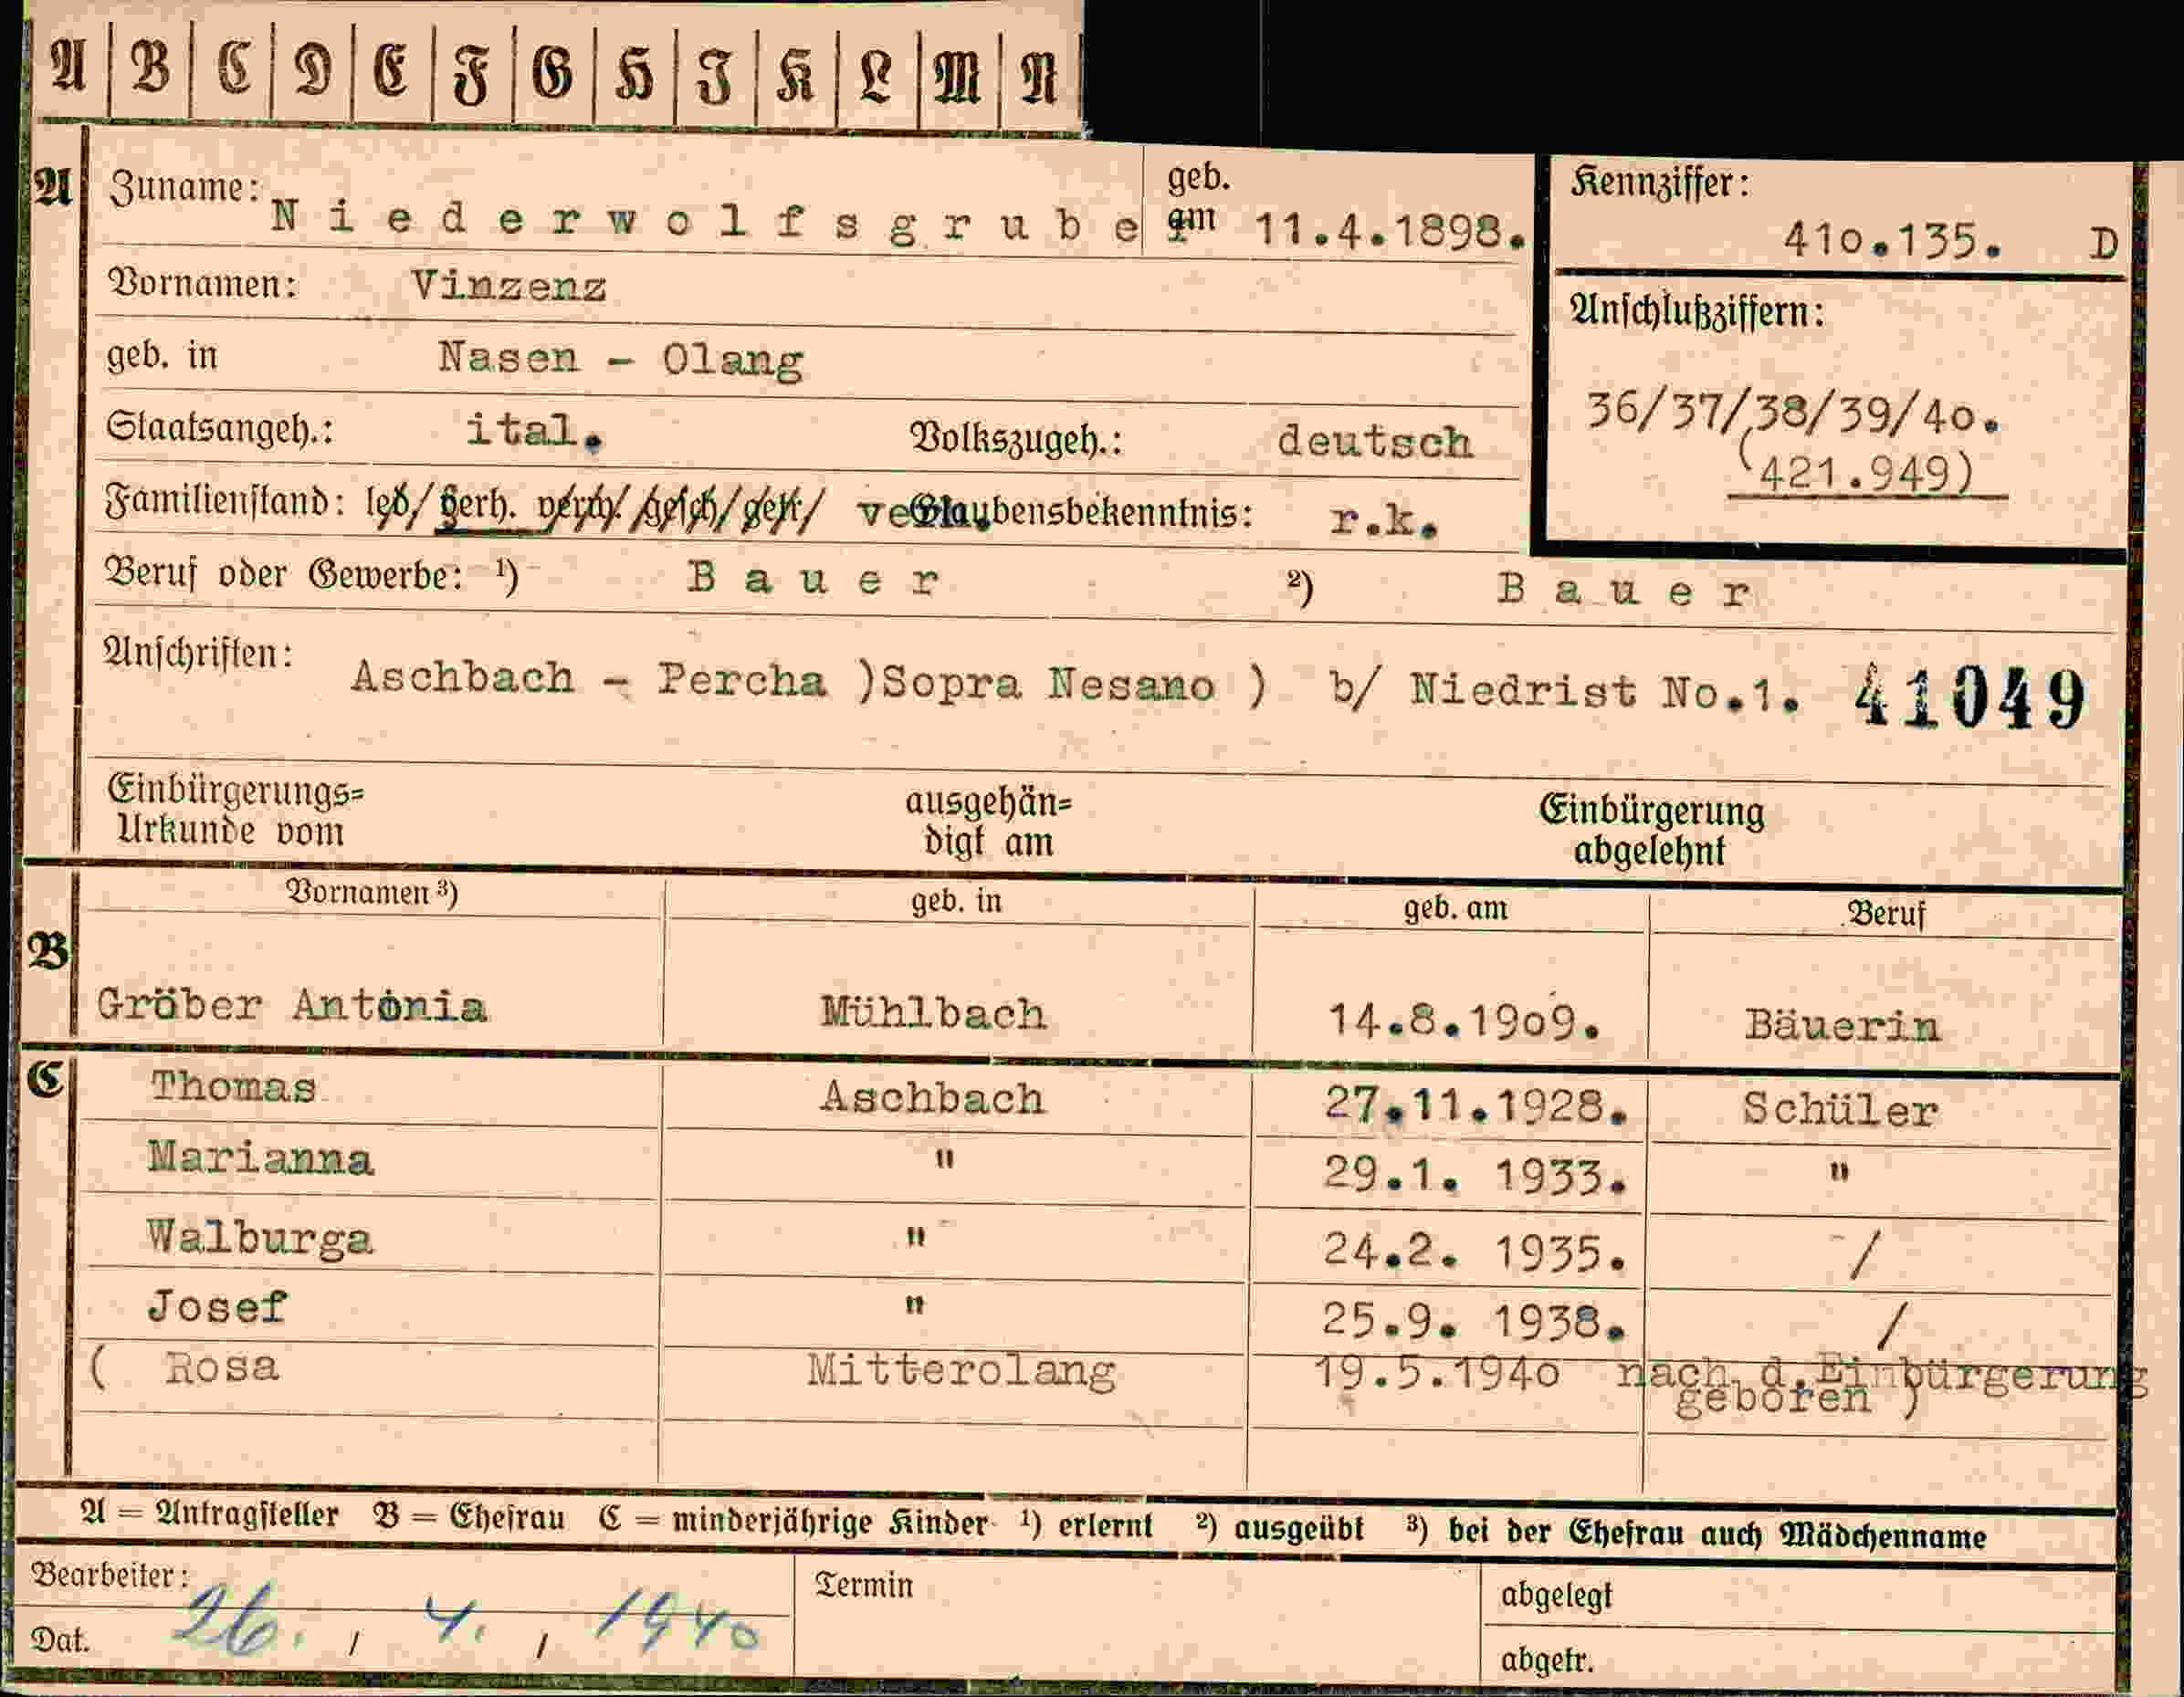 A B C D E F G H I K L M N
A Zuname: Niederwolfsgrube geb. am 11.4.1898. Kennziffer: 410.135. D
Vornamen: Vinzenz
geb. in Nasen - Olang Anschlußziffern:
Staatsangeh.: ital. Volkszugeh.: deutsch 36/37/38/39/40.
(421.949)
Familienstand: led/ verh. gesch/ Glaubensbekenntnis: r.k.
Beruf oder Gewerbe: ¹) Bauer ²) Bauer
Anschriften: Aschbach - Percha )Sopra Nesano ) b/ Niedrist No.1. 41049
Einbürgerungs= ausgehän= Einbürgerung
Urkunde vom digt am abgelehnt
Vornamen ³) geb. in geb. am Beruf
B
Gröber Antonia Mühlbach 14.8.1909. Bäuerin
C Thomas Aschbach 27.11.1928. Schüler
Marianna " 29.1. 1933. "
Walburga " 24.2. 1935. /
Josef " 25.9. 1938. /
( Rosa Mitterolang 19.5.1940 nach d.Einbürgerung
geboren )
A = Antragsteller B = Ehefrau C = minderjährige Kinder ¹) erlernt ²) ausgeübt ³) bei der Ehefrau auch Mädchenname
Bearbeiter: Termin abgelegt
Dat. 26. / 4. / 1940 abgetr.